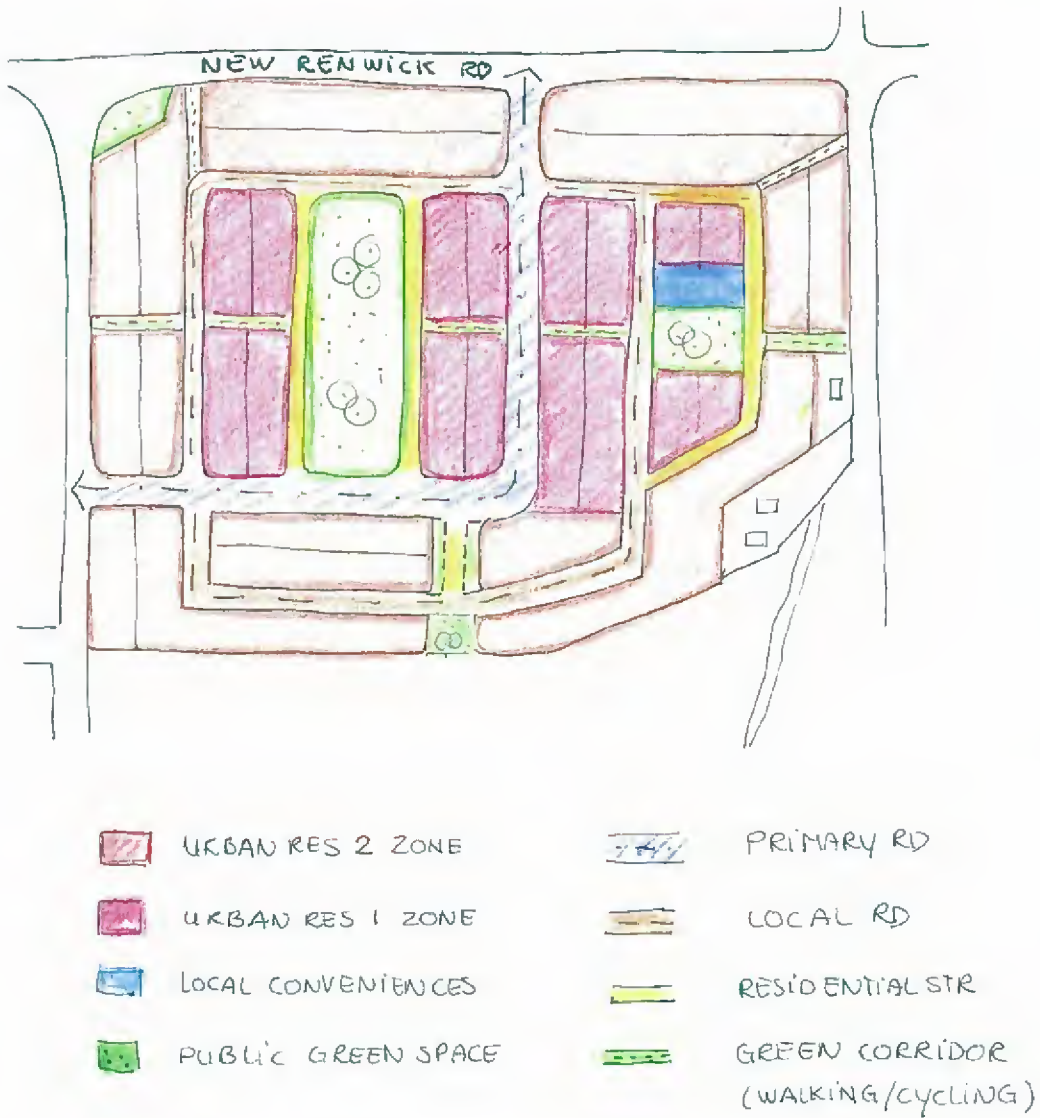 NEW RENWICK RD
URBAN RES 2 ZONE
URBAN RES 1 ZONE
LOCAL CONVENIENCES
PUBLIC GREEN SPACE
PRIMARY RD
LOCAL RD
RESIDENTIAL STR
GREEN CORRIDOR
(WALKING/CYCLING)